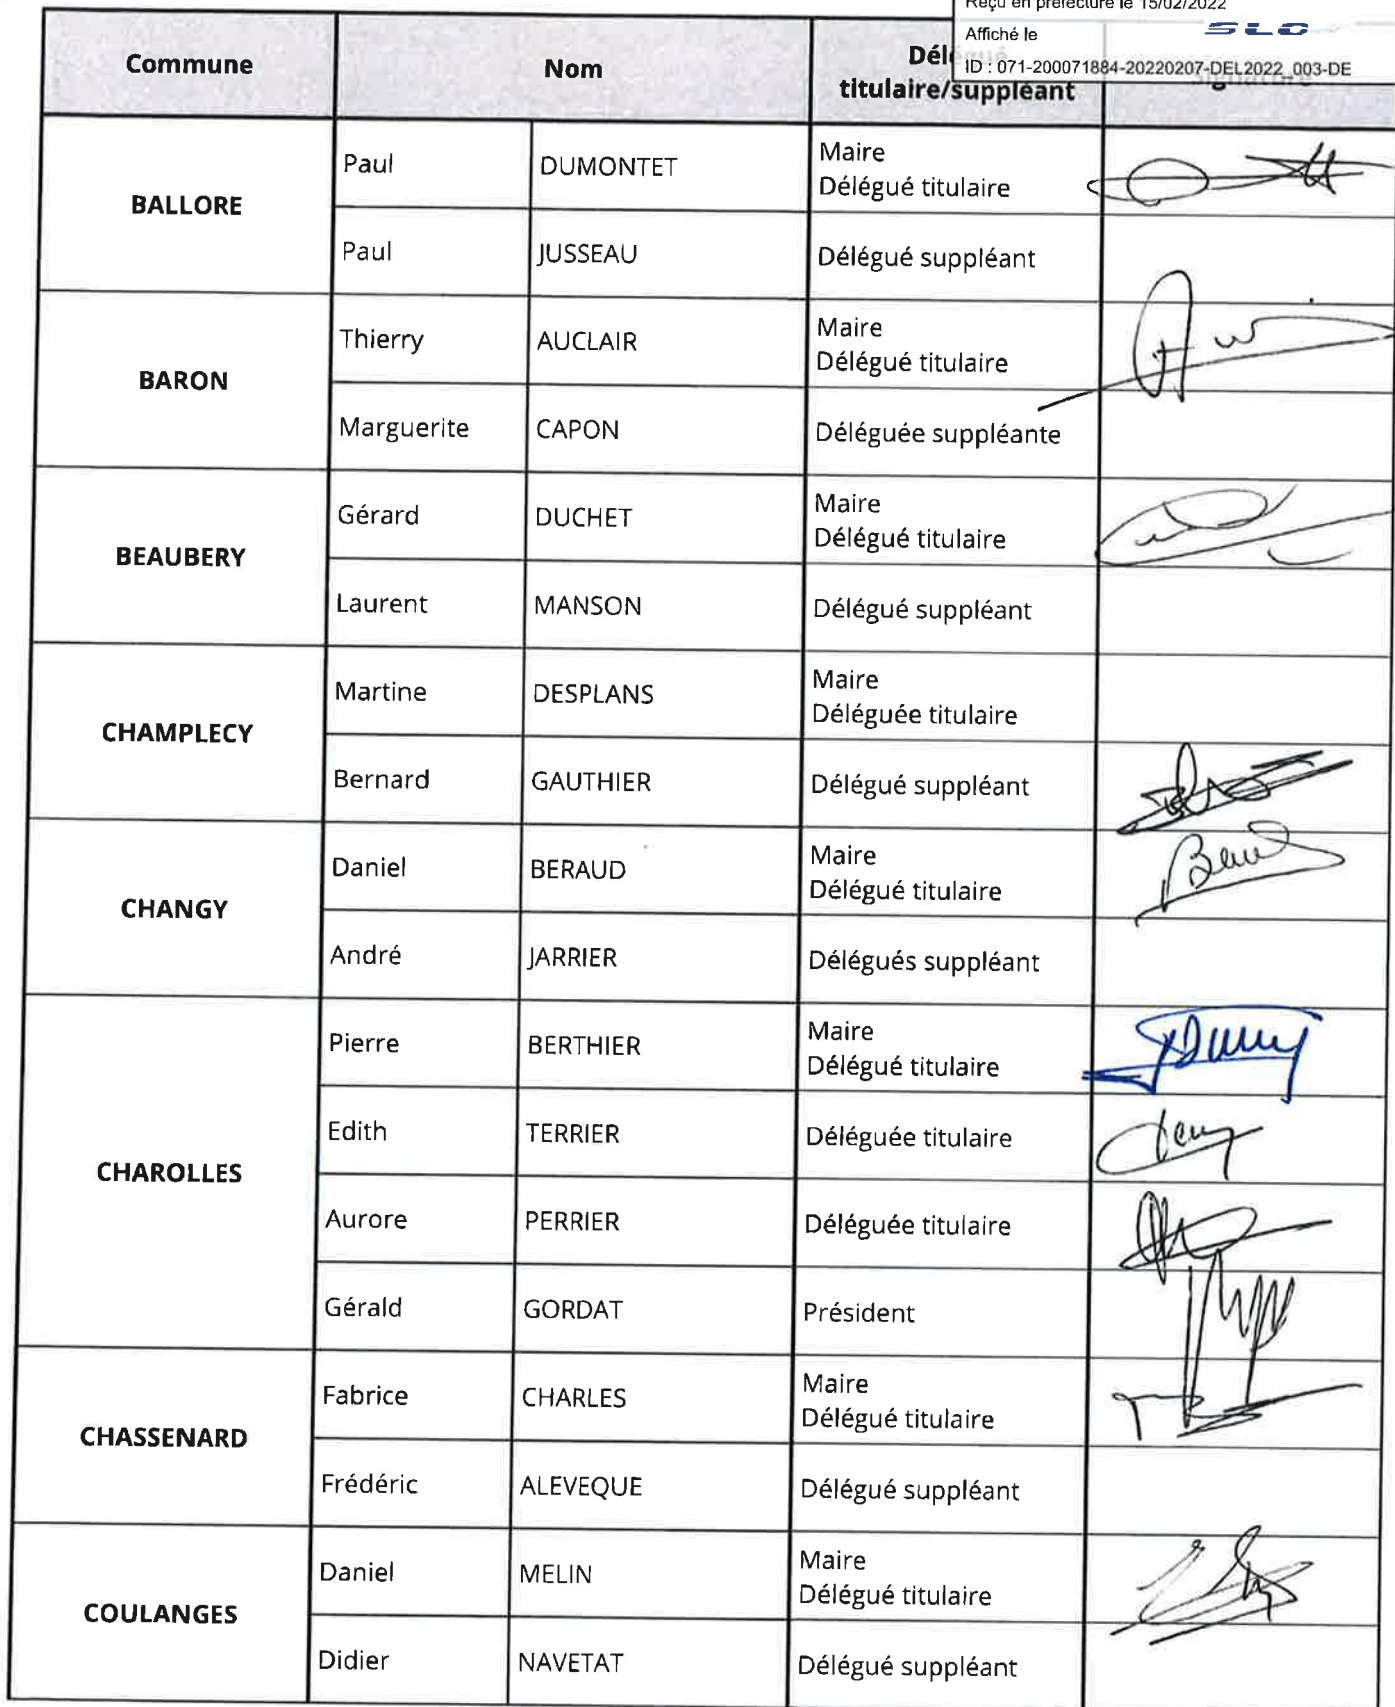 Reçu en préfecture le 15/02/2022
Affiché le
SLO
ID : 071-200071884-20220207-DEL2022_003-DE
Commune Nom Délégué
titulaire/suppléant Signature
BALLORE
Paul DUMONTET Maire
Délégué titulaire
Paul JUSSEAU Délégué suppléant
BARON
Thierry AUCLAIR Maire
Délégué titulaire
Marguerite CAPON Déléguée suppléante
BEAUBERY
Gérard DUCHET Maire
Délégué titulaire
Laurent MANSON Délégué suppléant
CHAMPLECY
Martine DESPLANS Maire
Déléguée titulaire
Bernard GAUTHIER Délégué suppléant
CHANGY
Daniel BERAUD Maire
Délégué titulaire
André JARRIER Délégués suppléant
CHAROLLES
Pierre BERTHIER Maire
Délégué titulaire
Edith TERRIER Déléguée titulaire
Aurore PERRIER Déléguée titulaire
Gérald GORDAT Président
CHASSENARD
Fabrice CHARLES Maire
Délégué titulaire
Frédéric ALEVEQUE Délégué suppléant
COULANGES
Daniel MELIN Maire
Délégué titulaire
Didier NAVETAT Délégué suppléant